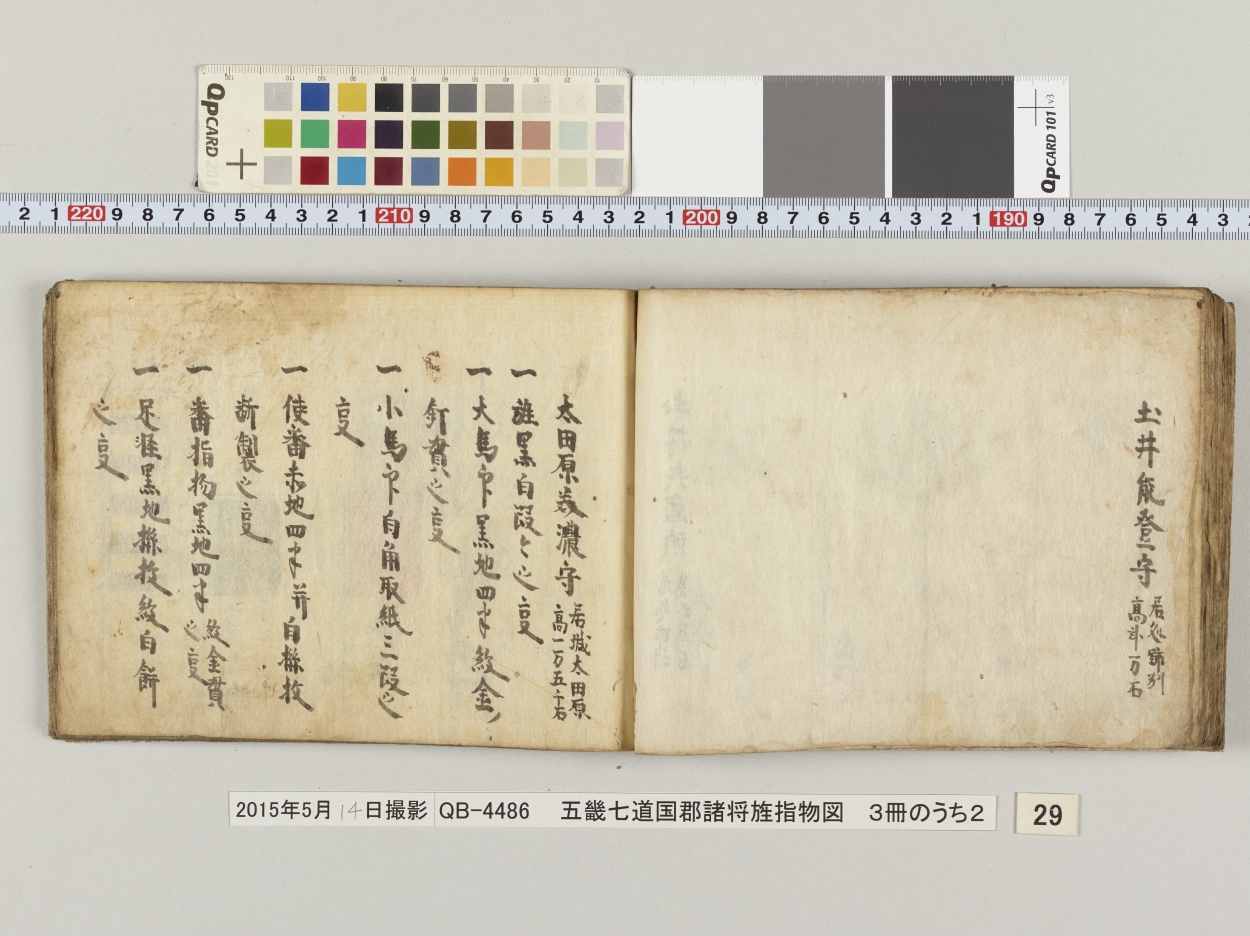 QPCARD 201
QPCARD 101 v3
2 1 220 9 8 7 6 5 4 3 2 1 210 9 8 7 6 5 4 3 2 1 200 9 8 7 6 5 4 3 2 1 190 9 8 7 6 5 4 3
土井能登守
高 一万石
太田原美濃守 居城太田原
高一万五千石
一 旌黒白段々之㕝
一 大馬印黒地四半紋金ノ
釘貫之㕝
一 小馬印白角取紙三段之
㕝
一 使番赤地四半并白撓
断製之㕝
一 番指物黒地四半 紋金貫
之㕝
一 足 黒地撓 紋白餅
之㕝
2015年5月14日撮影 QB-4486 五畿七道国郡諸将旌指物図 3冊のうち2
29